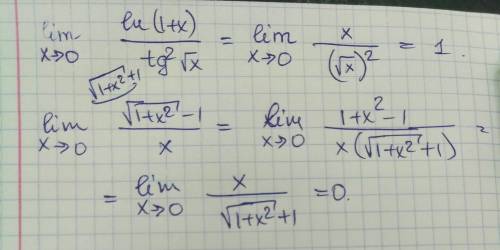 lim x→0 ln(1+x) / tg²√x = lim x→0 x / (√x)² = 1.
√(1+x²)+1
lim x→0 (√(1+x²) - 1) / x = lim x→0 (1+x²-1) / (x(√(1+x²)+1)) =
= lim x→0 x / (√(1+x²)+1) = 0.